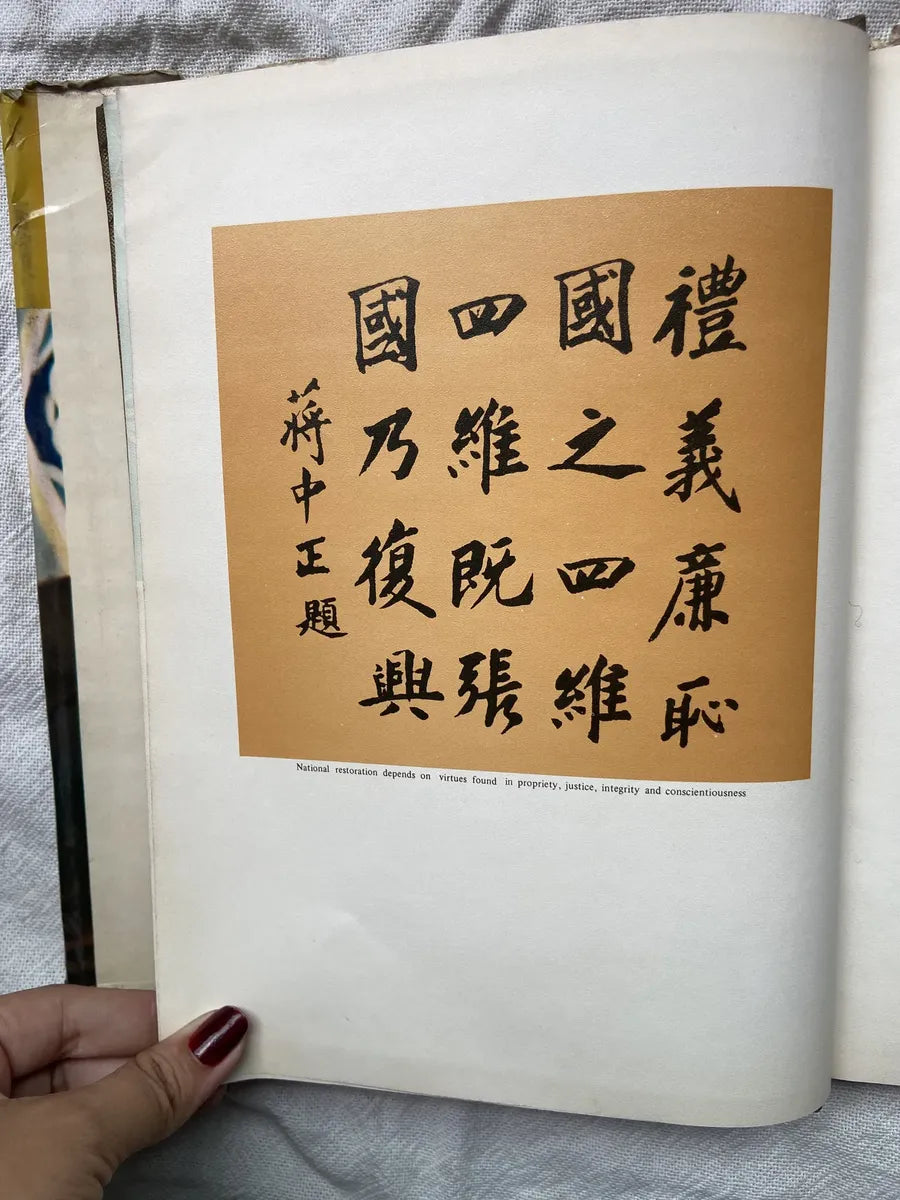 禮義廉恥
國之四維
四維既張
國乃復興
蔣中正題
National restoration depends on virtues found in propriety, justice, integrity and conscientiousness